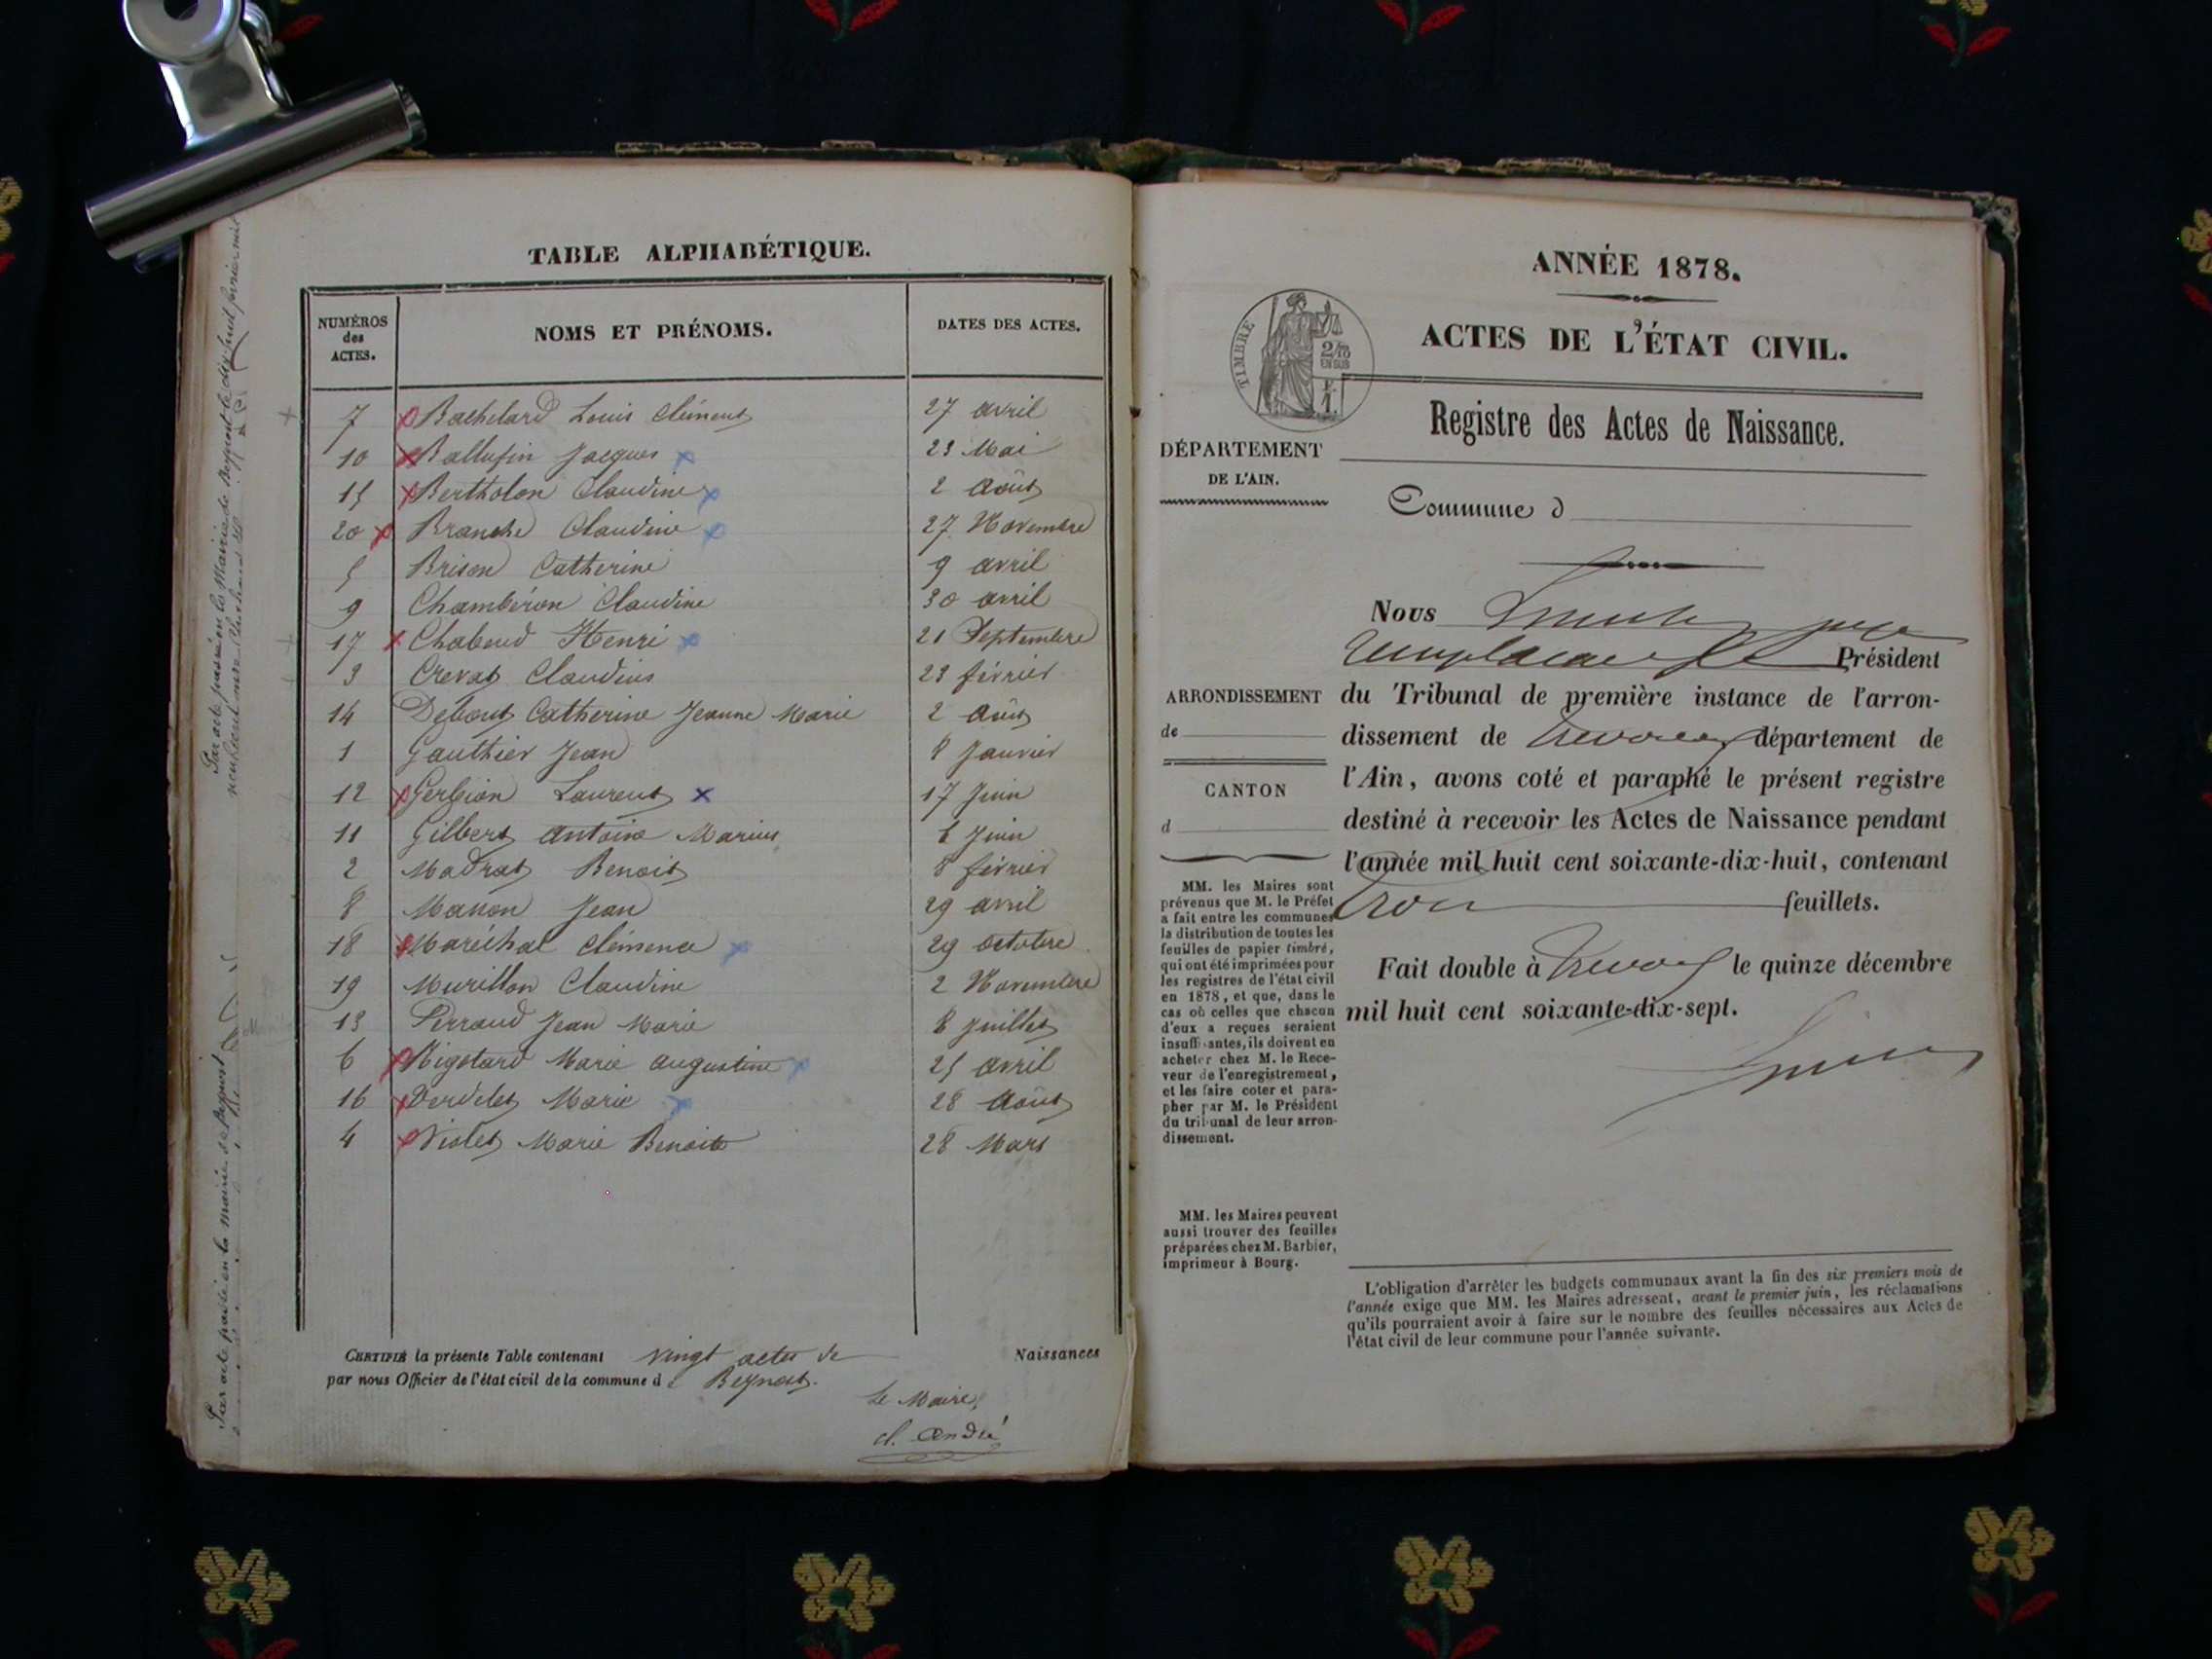 TABLE ALPHABÉTIQUE.
NUMÉROS des ACTES.
NOMS ET PRÉNOMS.
DATES DES ACTES.
7 Bachelard Louis Clément 27 avril
10 Ballufin Jacques 23 Mai
15 Bertholon Claudine 2 Août
20 Branche Claudine 27 Novembre
5 Brison Catherine 9 avril
9 Chambéron Claudine 30 avril
17 Chaboud Henri 21 Septembre
3 Crevat Claudius 23 février
14 Debout Catherine Jeanne Marie 2 Août
1 Gauthier Jean 8 Janvier
12 Gerbion Laurent 17 Juin
11 Gilbert Antoine Marius 6 Juin
2 Madrat Benoit 8 février
8 Manon Jean 29 avril
18 Maréchal Clémence 29 octobre
19 Murillon Claudine 2 Novembre
13 Perraud Jean Marie 8 Juillet
6 Rigotard Marie Augustine 25 avril
16 Verdelet Marie 28 Août
4 Violet Marie Benoite 28 Mars
CERTIFIÉ la présente Table contenant vingt actes de Naissances
par nous Officier de l'état civil de la commune d Beynost.
Le Maire,
Cl. André
Par acte passé en la Mairie de Beynost le dix huit février mil
Par acte passé en la mairie de Beynost
ANNÉE 1878.
ACTES DE L'ÉTAT CIVIL.
TIMBRE
2/10
EN SUS
Registre des Actes de Naissance.
DÉPARTEMENT
DE L'AIN.
Commune d
ARRONDISSEMENT
de
CANTON
d
MM. les Maires sont
prévenus que M. le Préfet
a fait entre les communes
la distribution de toutes les
feuilles de papier timbré,
qui ont été imprimées pour
les registres de l'état civil
en 1878, et que, dans le
cas où celles que chacun
d'eux a reçues seraient
insuffisantes, ils doivent en
acheter chez M. le Rece-
veur de l'enregistrement,
et les faire coter et para-
pher par M. le Président
du tribunal de leur arron-
dissement.
MM. les Maires peuvent
aussi trouver des feuilles
préparées chez M. Barbier,
imprimeur à Bourg.
Nous juge
remplaçant le Président
du Tribunal de première instance de l'arron-
dissement de Trévoux département de
l'Ain, avons coté et paraphé le présent registre
destiné à recevoir les Actes de Naissance pendant
l'année mil huit cent soixante-dix-huit, contenant
trois feuillets.
Fait double à Trévoux le quinze décembre
mil huit cent soixante-dix-sept.
L'obligation d'arrêter les budgets communaux avant la fin des six premiers mois de
l'année exige que MM. les Maires adressent, avant le premier juin, les réclamations
qu'ils pourraient avoir à faire sur le nombre des feuilles nécessaires aux Actes de
l'état civil de leur commune pour l'année suivante.